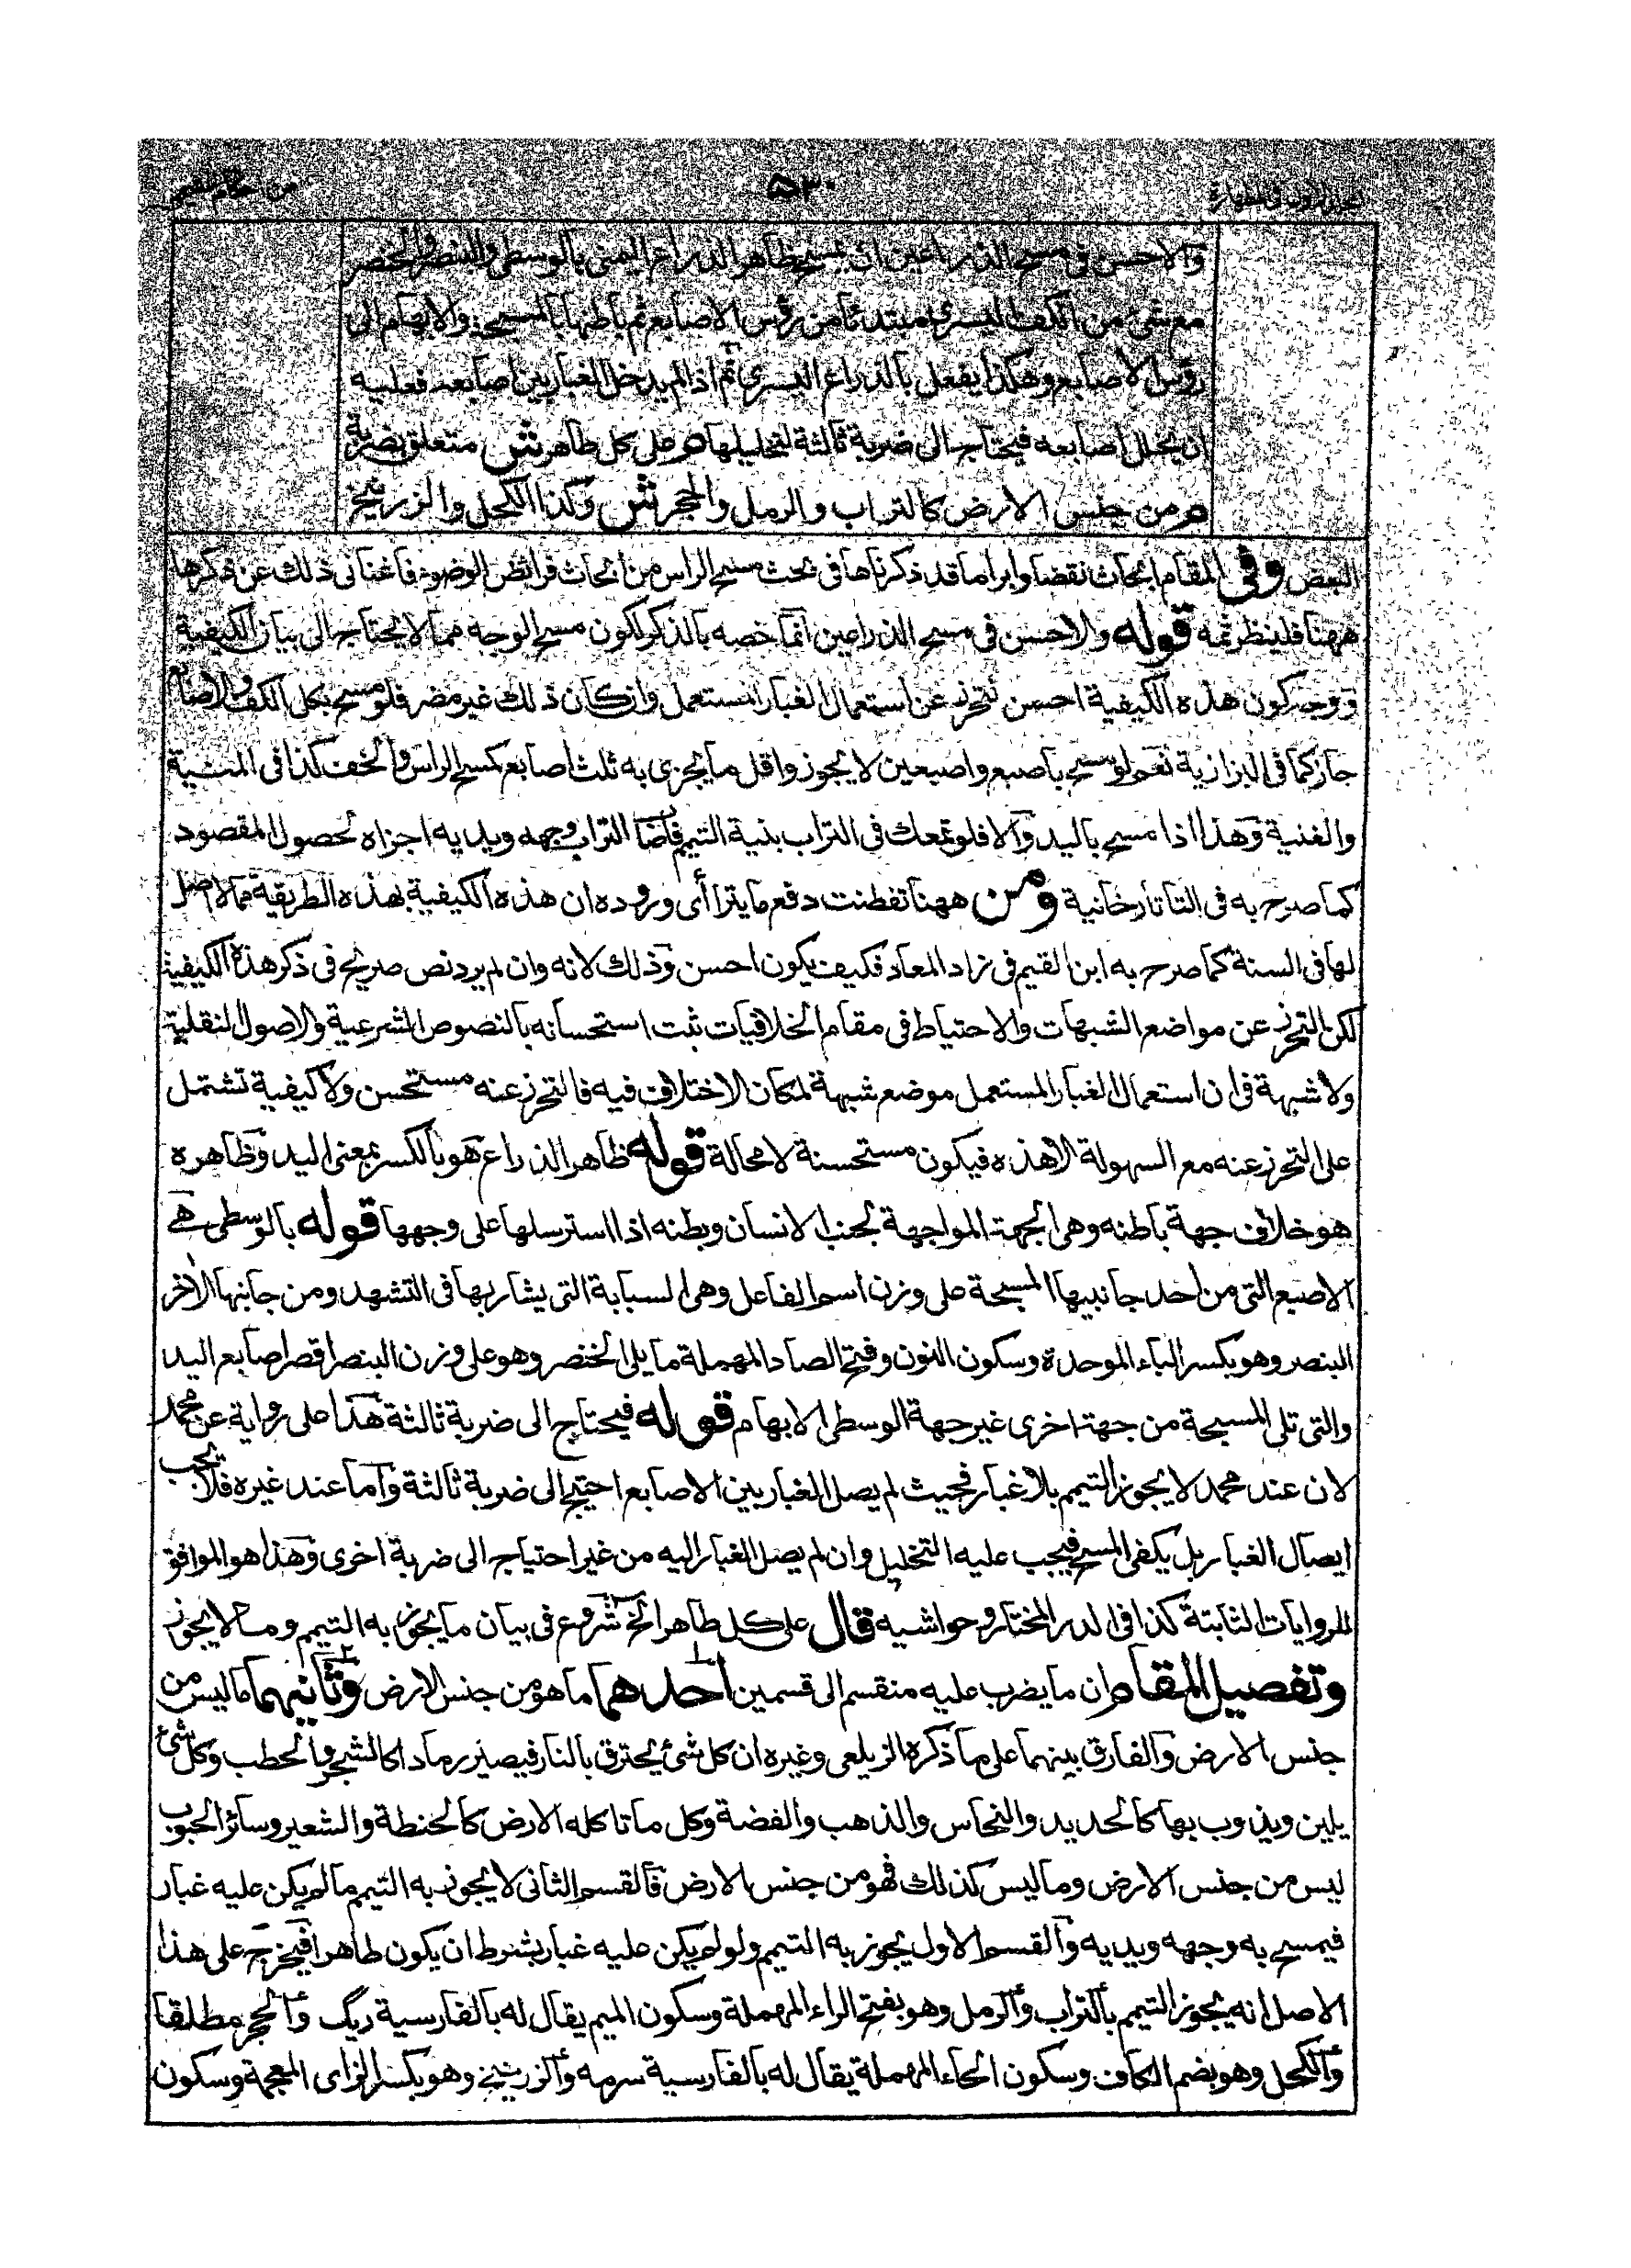 ٥٣٠
والاحسن في مسح الذراعين ان يمسح ظاهر الذراع اليمنى بالوسطى والبنصر والخنصر
مع شئ من الكف اليسرى مبتدئا من رؤس الاصابع ثم باطنها بالمسبحة والابهام الى
رؤس الاصابع وهكذا يفعل بالذراع اليسرى ثم اذا لم يدخل الغبار بين اصابعه فعليه
ان يخلل اصابعه فيحتاج الى ضربة ثالثة لتخليلها م على كل طاهر ش متعلق بضربة
م من جنس الارض كالتراب والرمل والحجر ش وكذا الكحل والزرنيخ
البعض وفي المقام ابحاث نقضا وابراما قد ذكرناها في بحث مسح الراس من ابحاث فرائض الوضوء فاغنانى ذلك عن ذكرها
ههنا فلينظر ثمه قوله والاحسن في مسح الذراعين انما خصه بالذكر لكون مسح الوجه مما لا يحتاج الى بيان الكيفية
ووجه كون هذه الكيفية احسن تحرز عن استعمال الغبار المستعمل وان كان ذلك غير مضر فلو مسح بكل الكف والاصابع
جاز كما في البزازية نعم لو مسح باصبع واصبعين لا يجوز واقل ما يجزى به ثلث اصابع كمسح الراس والخف كذا في المنية
والغنية وهذا اذا مسح باليد والا فلو تمعك في التراب بنية التيمم فاصاب التراب وجهه ويديه اجزاه لحصول المقصود
كما صرح به في التاتارخانية ومن ههنا تفطنت دفع ما يترا أى وروده ان هذه الكيفية بهذه الطريقة مما لا اصل
لها في السنة كما صرح به ابن القيم في زاد المعاد فكيف يكون احسن وذلك لانه وان لم يرد نص صريح في ذكر هذه الكيفية
لكن التحرز عن مواضع الشبهات والاحتياط في مقام الخلافيات ثبت استحسانه بالنصوص الشرعية والاصول النقلية
ولا شبهة في ان استعمال الغبار المستعمل موضع شبهة لمكان الاختلاف فيه فالتحرز عنه مستحسن ولا كيفية تشتمل
على التحرز عنه مع السهولة الا هذه فيكون مستحسنة لا محالة قوله ظاهر الذراع هو بالكسر بمعنى اليد وظاهره
هو خلاف جهة باطنه وهي الجهة المواجهة لجنب الانسان وبطنه اذا استرسلها على وجهها قوله بالوسطى هى
الاصبع التى من احد جانبيها المسبحة على وزن اسم الفاعل وهى السبابة التى يشار بها فى التشهد ومن جانبها الآخر
البنصر وهو بكسر الباء الموحدة وسكون النون وفتح الصاد المهملة ما يلى الخنصر وهو على وزن البنصر اقصر اصابع اليد
والتى تلى المسبحة من جهة اخرى غير جهة الوسطى الابهام قوله فيحتاج الى ضربة ثالثة هذا على رواية عن محمد
لان عند محمد لا يجوز التيمم بلا غبار فحيث لم يصل الغبار بين الاصابع احتيج الى ضربة ثالثة واما عند غيره فلا يجب
ايصال الغبار بل يكفى المسح فيجب عليه التخليل وان لم يصل الغبار اليه من غير احتياج الى ضربة اخرى وهذا هو الموافق
للروايات الثابتة كذا فى الدر المختار وحواشيه قال على كل طاهر الخ شروع فى بيان ما يجوز به التيمم وما لا يجوز
وتفصيل المقام ان ما يضرب عليه منقسم الى قسمين احدهما ما هو من جنس الارض وثانيهما ما ليس من
جنس الارض والفارق بينهما على ما ذكره الزيلعى وغيره ان كل شئ يحترق بالنار فيصير رمادا كالشجر والحطب وكل شئ
يلين ويذوب بها كالحديد والنحاس والذهب والفضة وكل ما تاكله الارض كالحنطة والشعير وسائر الحبوب
ليس من جنس الارض وما ليس كذلك فهو من جنس الارض فالقسم الثانى لا يجوز به التيمم ما لم يكن عليه غبار
فيمسح به وجهه ويديه والقسم الاول يجوز به التيمم ولو لم يكن عليه غبار بشرط ان يكون طاهرا فيخرج على هذا
الاصل انه يجوز التيمم بالتراب والرمل وهو بفتح الراء المهملة وسكون الميم يقال له بالفارسية ريگ والحجر مطلقا
والكحل وهو بضم الكاف وسكون الحاء المهملة يقال له بالفارسية سرمه والزرنيخ وهو بكسر الزاى المعجمة وسكون